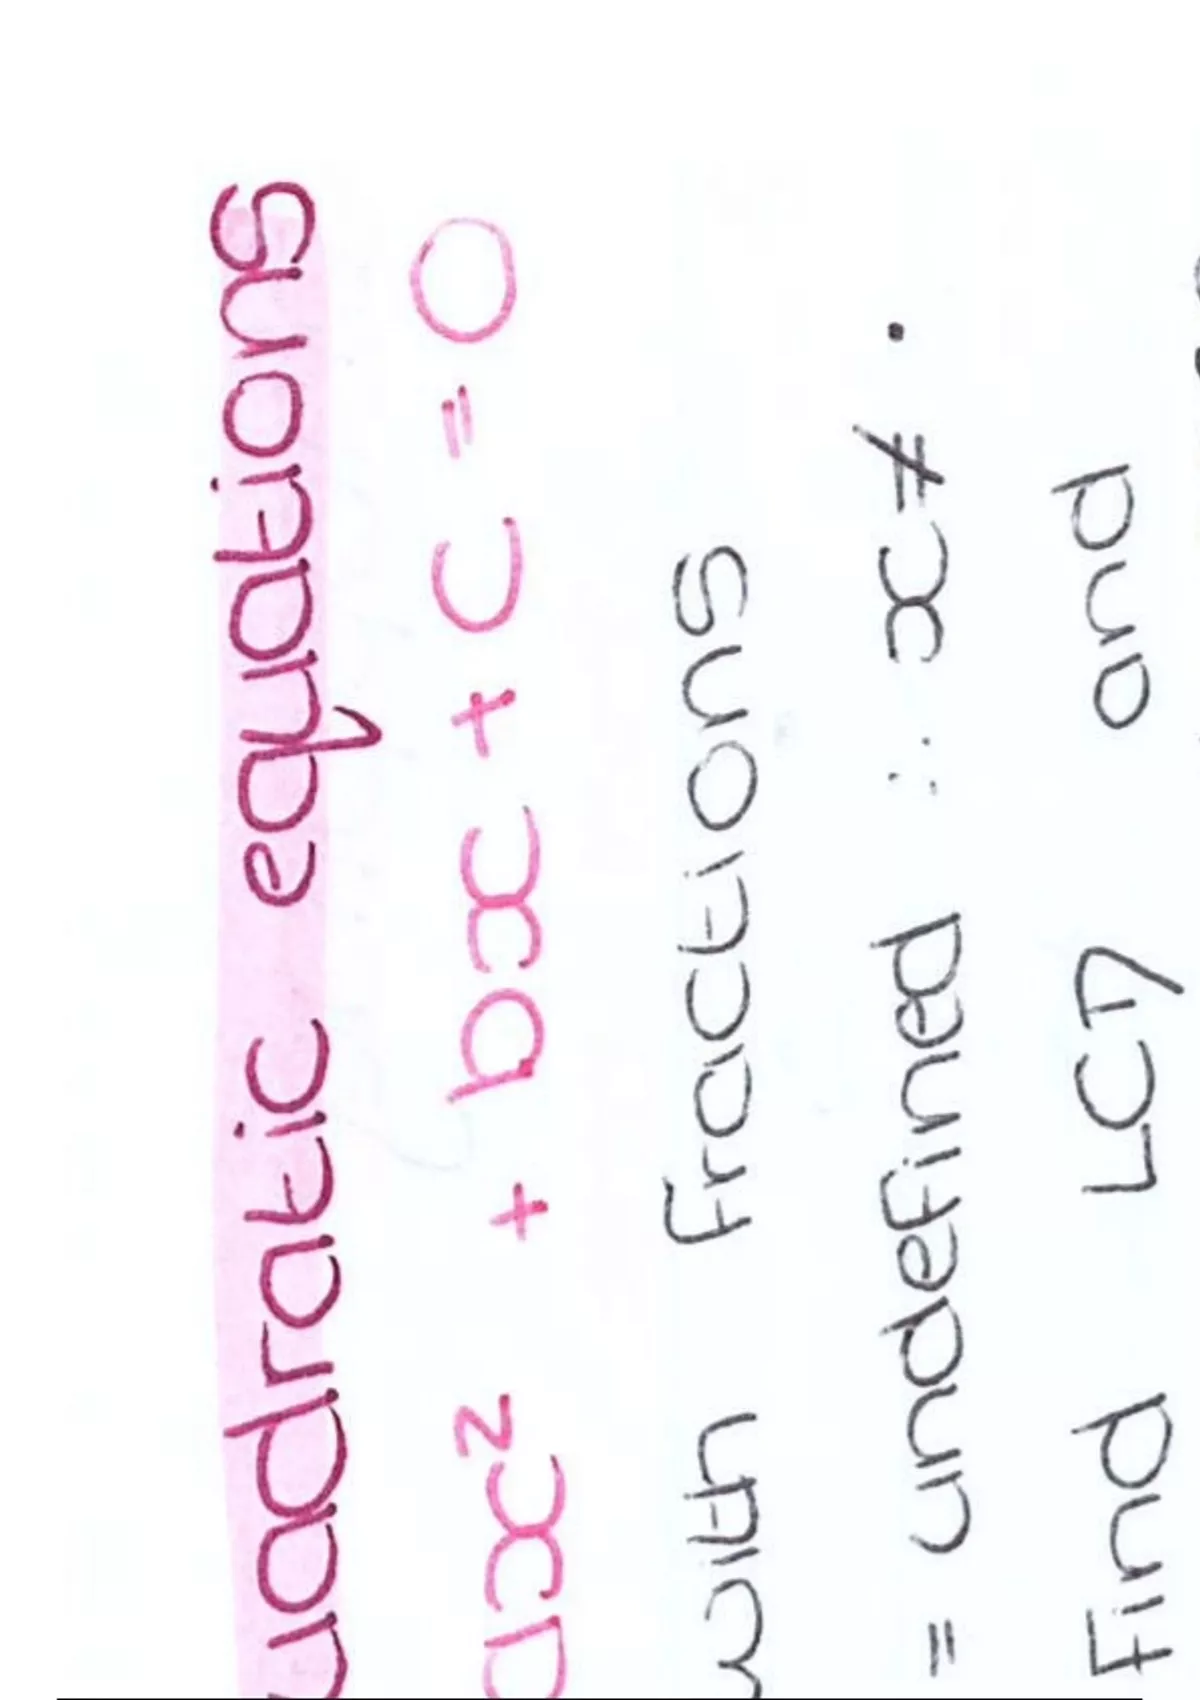 uadratic equations
ax² + bx + c = 0
with fractions
= undefined ∴ x ≠ .
Find LCD and